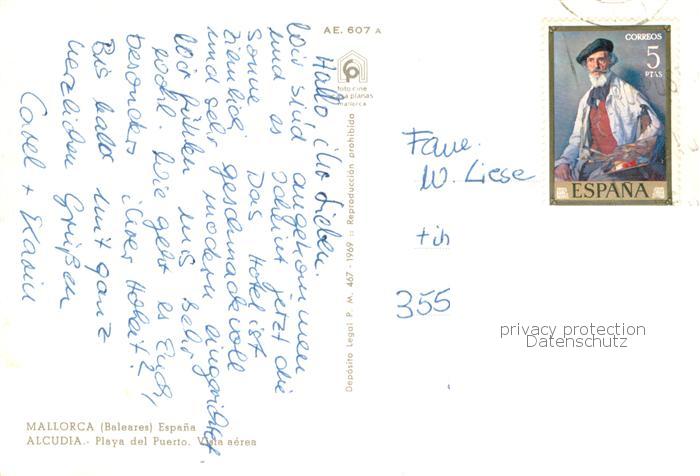 AE. 607 A
foto cine
casa planas
mallorca
Hallo ihr Lieben.
Wir sind angekommen
und es scheint jetzt die
Sonne. Das Hotel ist
ziemlich geschmackvoll
und sehr modern eingerichtet
Wir fühlen uns sehr
wohl. Wie geht es Euch,
besonders
Bis bald mit ganz
herzlichen Grüßen
+ Karin
Depósito Legal P. M. 467 - 1969 :: Reproducción prohibida
MALLORCA (Baleares) España
ALCUDIA.- Playa del Puerto. Vista aérea
CORREOS
5
PTAS
ESPAÑA
Fam.
W. Liese
355
privacy protection
Datenschutz